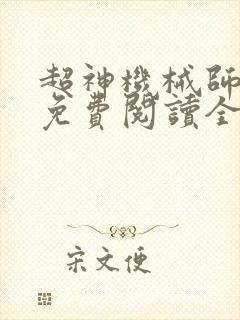 超神機械師
免費閱讀全
宋文便